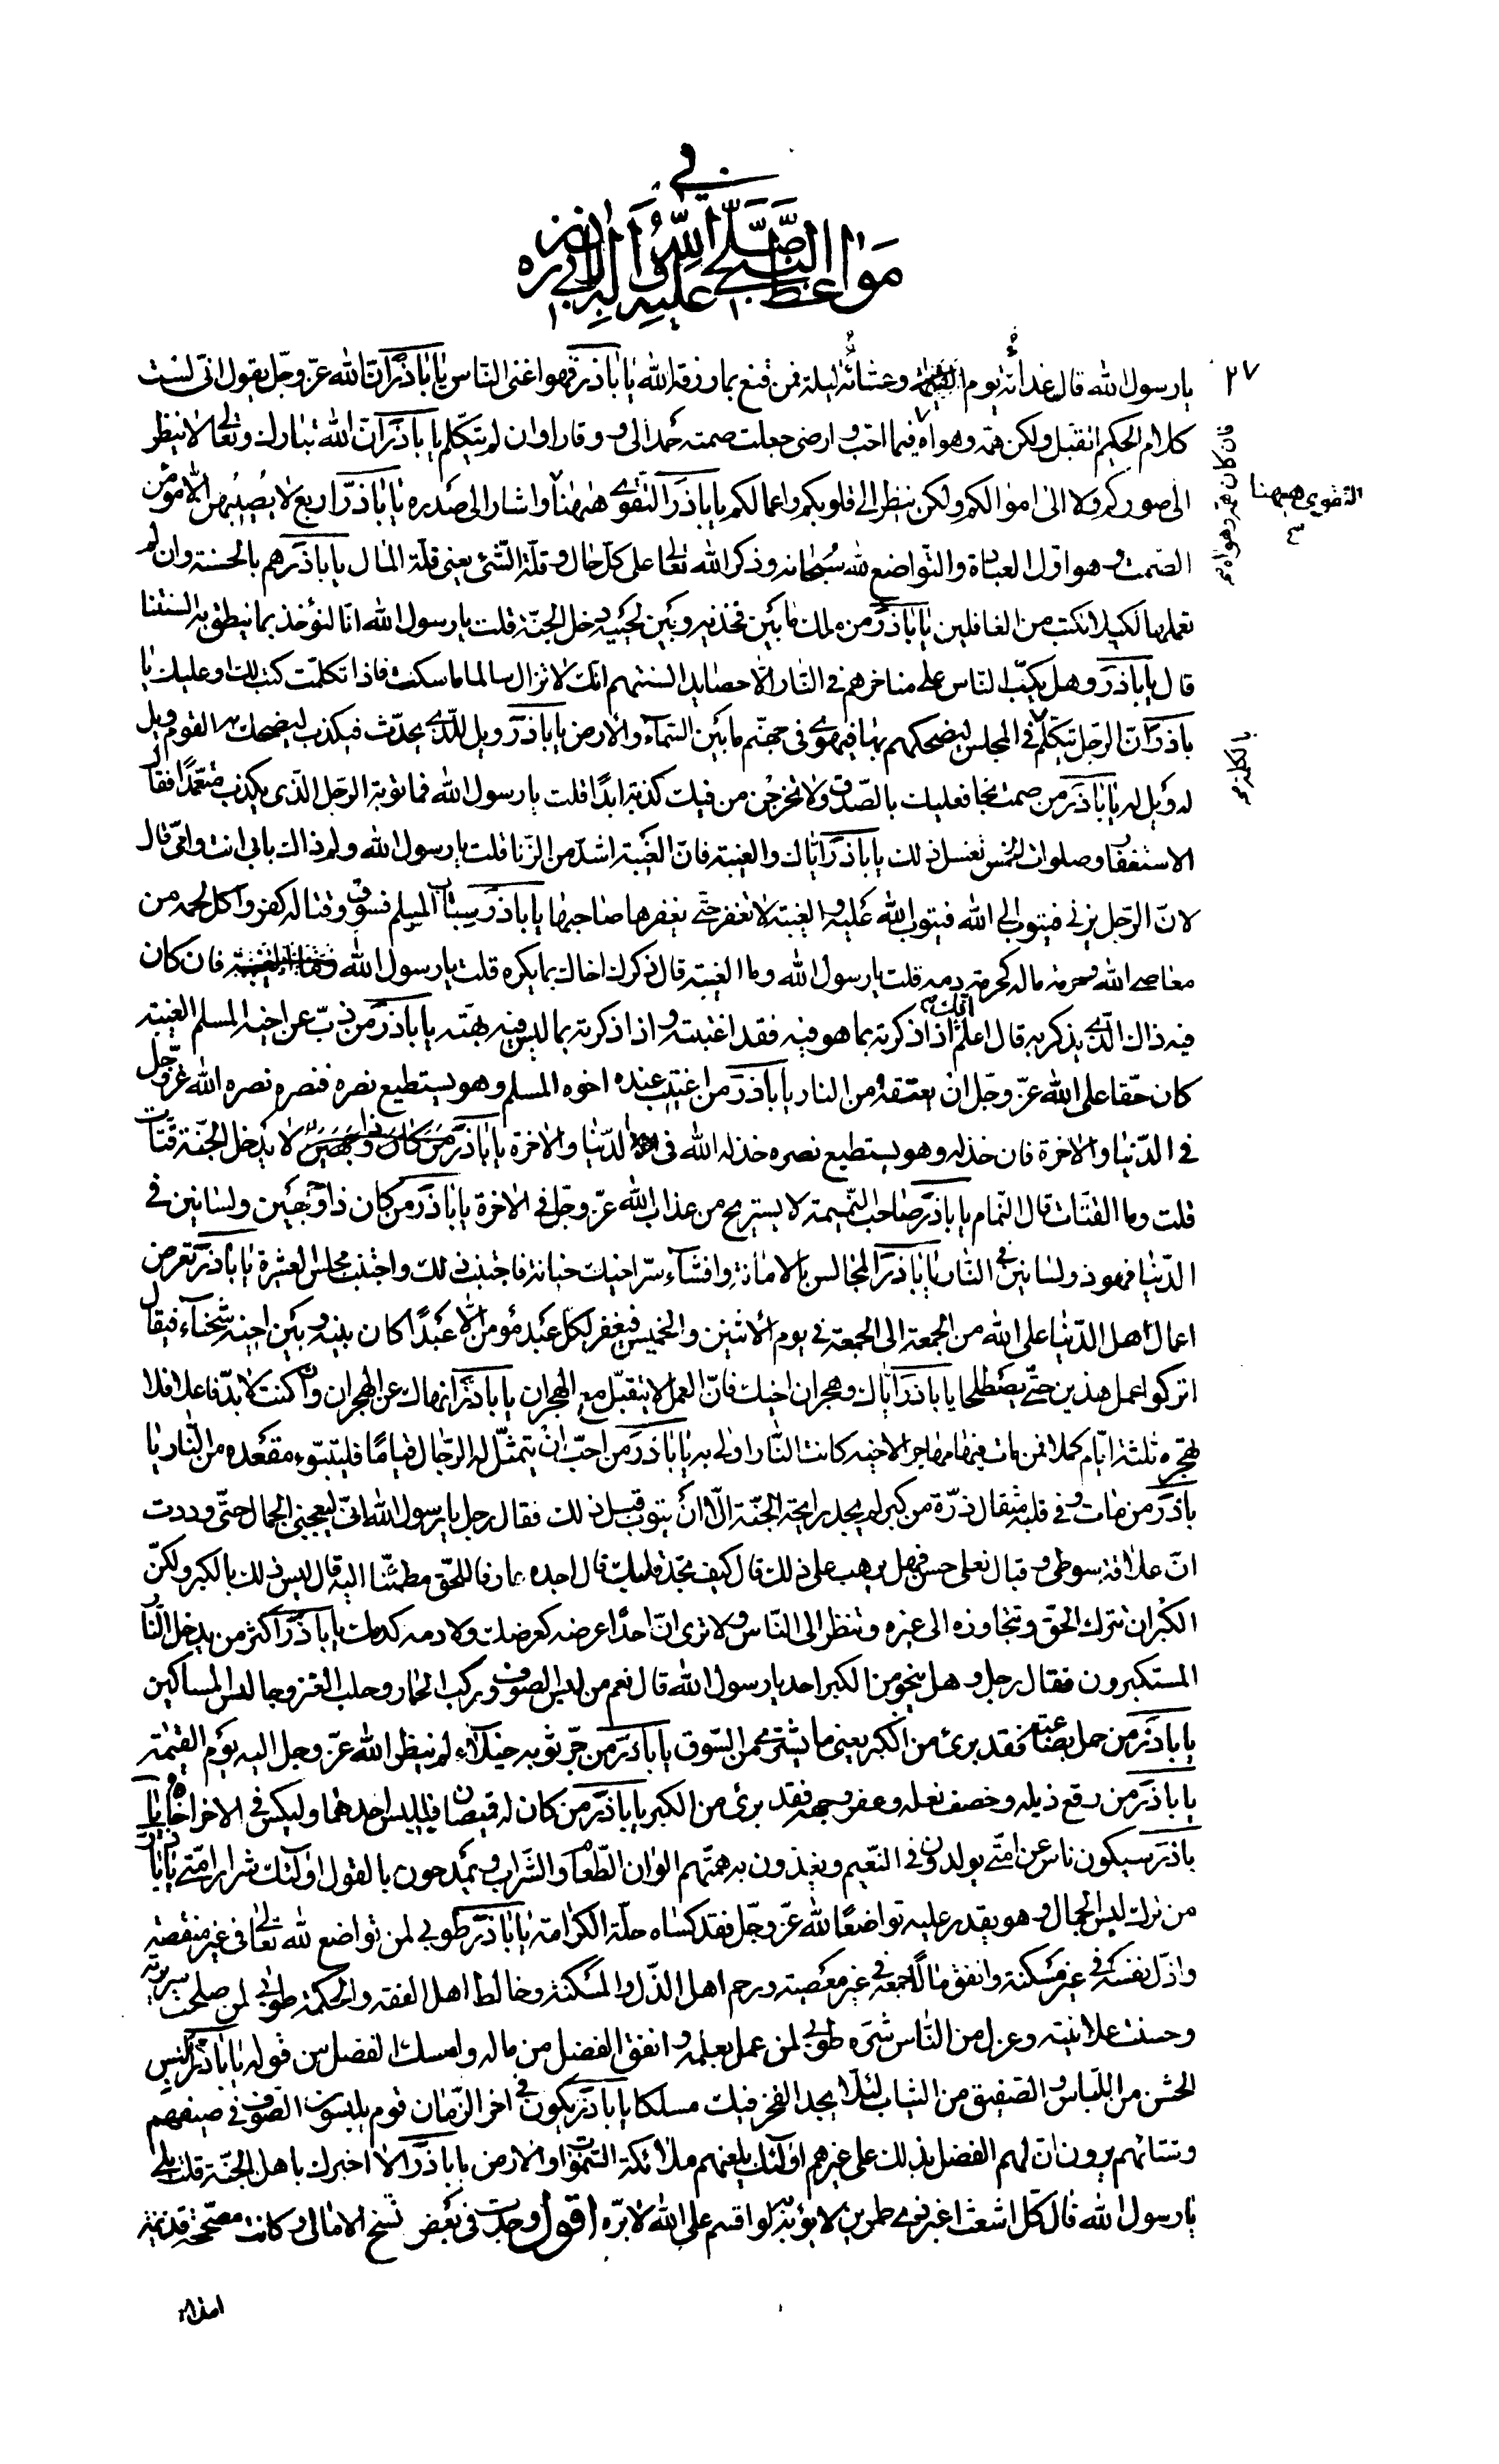 في
مواعظ النبي صلى الله عليه واله لابي ذر ره
٢٧
يا رسول الله قال غداء يوم وعشاء ليلة فمن قنع بما رزقه الله يا باذر فهو اغنى الناس يا باذر ان الله عز وجل يقول انى لست
كلام الحكيم اتقبل ولكن همه وهواه فيما احب و ارضى جعلت صمته حمدا لى و وقارا وان لم يتكلم يا باذر ان الله تبارك وتعالى لا ينظر
الى صوركم ولا الى اموالكم ولكن ينظر الى قلوبكم واعمالكم يا باذر التقوى ههنا واشار الى صدره يا باذر اربع لا يصيبهن الا مؤمن
الصمت و هو اول العبادة والتواضع لله سبحانه وذكر الله تعالى على كل حال و قلة الشئ يعنى قلة المال يا باذر هم بالحسنة وان لم
تعملها لكيلا تكتب من الغافلين يا باذر من ملك ما بين فخذيه وبين لحييه دخل الجنة قلت يا رسول الله انا لنؤخذ بما ينطق به السنتنا
قال يا باذر وهل يكب الناس على مناخرهم في النار الا حصايد السنتهم انك لا تزال سالما ما سكت فاذا تكلمت كتب لك او عليك يا
باذر ان الرجل يتكلم في المجلس ليضحكهم بها فيهوى فى جهنم ما بين السماء والارض يا باذر ويل للذى يحدث فيكذب ليضحك به القوم ويل
له ويل له يا باذر من صمت نجا فعليك بالصدق ولا تخرجن من فيك كذبة ابدا قلت يا رسول الله فما توبة الرجل الذى يكذب متعمدا فقال
الاستغفار وصلوات الخمس تغسل ذلك يا باذر اياك والغيبة فان الغيبة اشد من الزنا قلت يا رسول الله ولم ذاك بابى انت وامى قال
لان الرجل يزنى فيتوب الى الله فيتوب الله عليه و الغيبة لا تغفر حتى يغفرها صاحبها يا باذر سباب المسلم فسوق وقتاله كفر واكل لحمه من
معاصى الله وحرمة ماله كحرمة دمه قلت يا رسول الله وما الغيبة قال ذكرك اخاك بما يكره قلت يا رسول الله فان كان
فيه ذاك الذى يذكر به قال اعلم انك اذا ذكرته بما هو فيه فقد اغتبته و اذا ذكرته بما ليس فيه بهته يا باذر من ذب عن اخيه المسلم الغيبة
كان حقا على الله عز وجل ان يعتقه من النار يا باذر من اغتيب عنده اخوه المسلم وهو يستطيع نصره فنصره نصره الله عز وجل
في الدنيا والاخرة فان خذله وهو يستطيع نصره خذله الله فى الدنيا والاخرة يا باذر لا يدخل الجنة قتات
قلت وما القتات قال النمام يا باذر صاحب النميمة لا يستريح من عذاب الله عز وجل في الاخرة يا باذر من كان ذا وجهين ولسانين في
الدنيا فهو ذو لسانين في النار يا باذر المجالس بالامانة وافشاء سر اخيك خيانة فاجتنب ذلك واجتنب مجلس العشرة يا باذر تعرض
اعمال اهل الدنيا على الله من الجمعة الى الجمعة في يوم الاثنين والخميس فيغفر لكل عبد مؤمن الا عبدا كان بينه و بين اخيه شحناء فيقال
اتركوا عمل هذين حتى يصطلحا يا باذر اياك وهجران اخيك فان العمل لا يتقبل مع الهجران يا باذر انهاك عن الهجران وان كنت لا بد فاعلا فلا
تهجره ثلثة ايام كملا فمن مات فيها مهاجرا لاخيه كانت النار اولى به يا باذر من احب ان يتمثل له الرجال قياما فليتبوء مقعده من النار يا
باذر من مات و في قلبه مثقال ذرة من كبر لم يجد رايحة الجنة الا ان يتوب قبل ذلك فقال رجل يا رسول الله انى ليعجبنى الجمال حتى وددت
ان علاقة سوطى و قبال نعلى حسن فهل يرهب على ذلك قال كيف تجد قلبك قال اجده عارفا للحق مطمئنا اليه قال ليس ذلك بالكبر ولكن
الكبر ان تترك الحق وتتجاوزه الى غيره وتنظر الى الناس ولا ترى ان احدا عرضه كعرضك ولا دمه كدمك يا باذر اكثر من يدخل النار
المستكبرون فقال رجل و هل ينجو من الكبر احد يا رسول الله قال نعم من لبس الصوف وركب الحمار وحلب العنز وجالس المساكين
يا باذر من حمل بضاعته فقد برئ من الكبر يعنى ما يشترى من السوق يا باذر من جر ثوبه خيلاء لم ينظر الله عز وجل اليه يوم القيمة
يا باذر من رقع ذيله وخصف نعله وعفر وجهه فقد برئ من الكبر يا باذر من كان له قميصان فليلبس احدهما وليكس في الاخر اخاه يا
باذر سيكون ناس من امتى يولدون في النعيم ويغذون به همتهم الوان الطعام والشراب و يمدحون بالقول اولئك شرار امتى يا باذر
من ترك لبس الجمال و هو يقدر عليه تواضعا لله عز وجل فقد كساه حلة الكرامة يا باذر طوبى لمن تواضع لله تعالى فى غير منقصة
واذل نفسه في غير مسكنة وانفق مالا جمعه في غير معصية ورحم اهل الذل والمسكنة وخالط اهل الفقه والحكمة طوبى لمن صلحت سريرته
وحسنت علانيته وعزل من الناس شره طوبى لمن عمل بعلمه و انفق الفضل من ماله وامسك الفضل من قوله يا باذر البس
الخشن من اللباس و الصفيق من الثياب لئلا يجد الفخر فيك مسلكا يا باذر يكون في اخر الزمان قوم يلبسون الصوف في صيفهم
وشتائهم يرون ان لهم الفضل بذلك على غيرهم اولئك يلعنهم ملائكة السموات والارض يا باذر الا اخبرك باهل الجنة قلت بلى
يا رسول الله قال كل اشعث اغبر ذى طمرين لا يؤبه به لو اقسم على الله لابره اقول وجدت فى بعض نسخ الامالى و كانت مصححة قديمة
فان كان همه وهواه
التقوى ههنا
بالكلمة